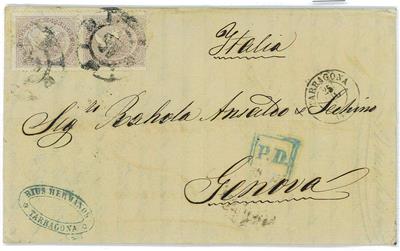 Italia
TARRAGONA
Sig.ri Rahola Ansaldo & Sechino
P.D.
Genova
RIUS HERMANOS
TARRAGONA